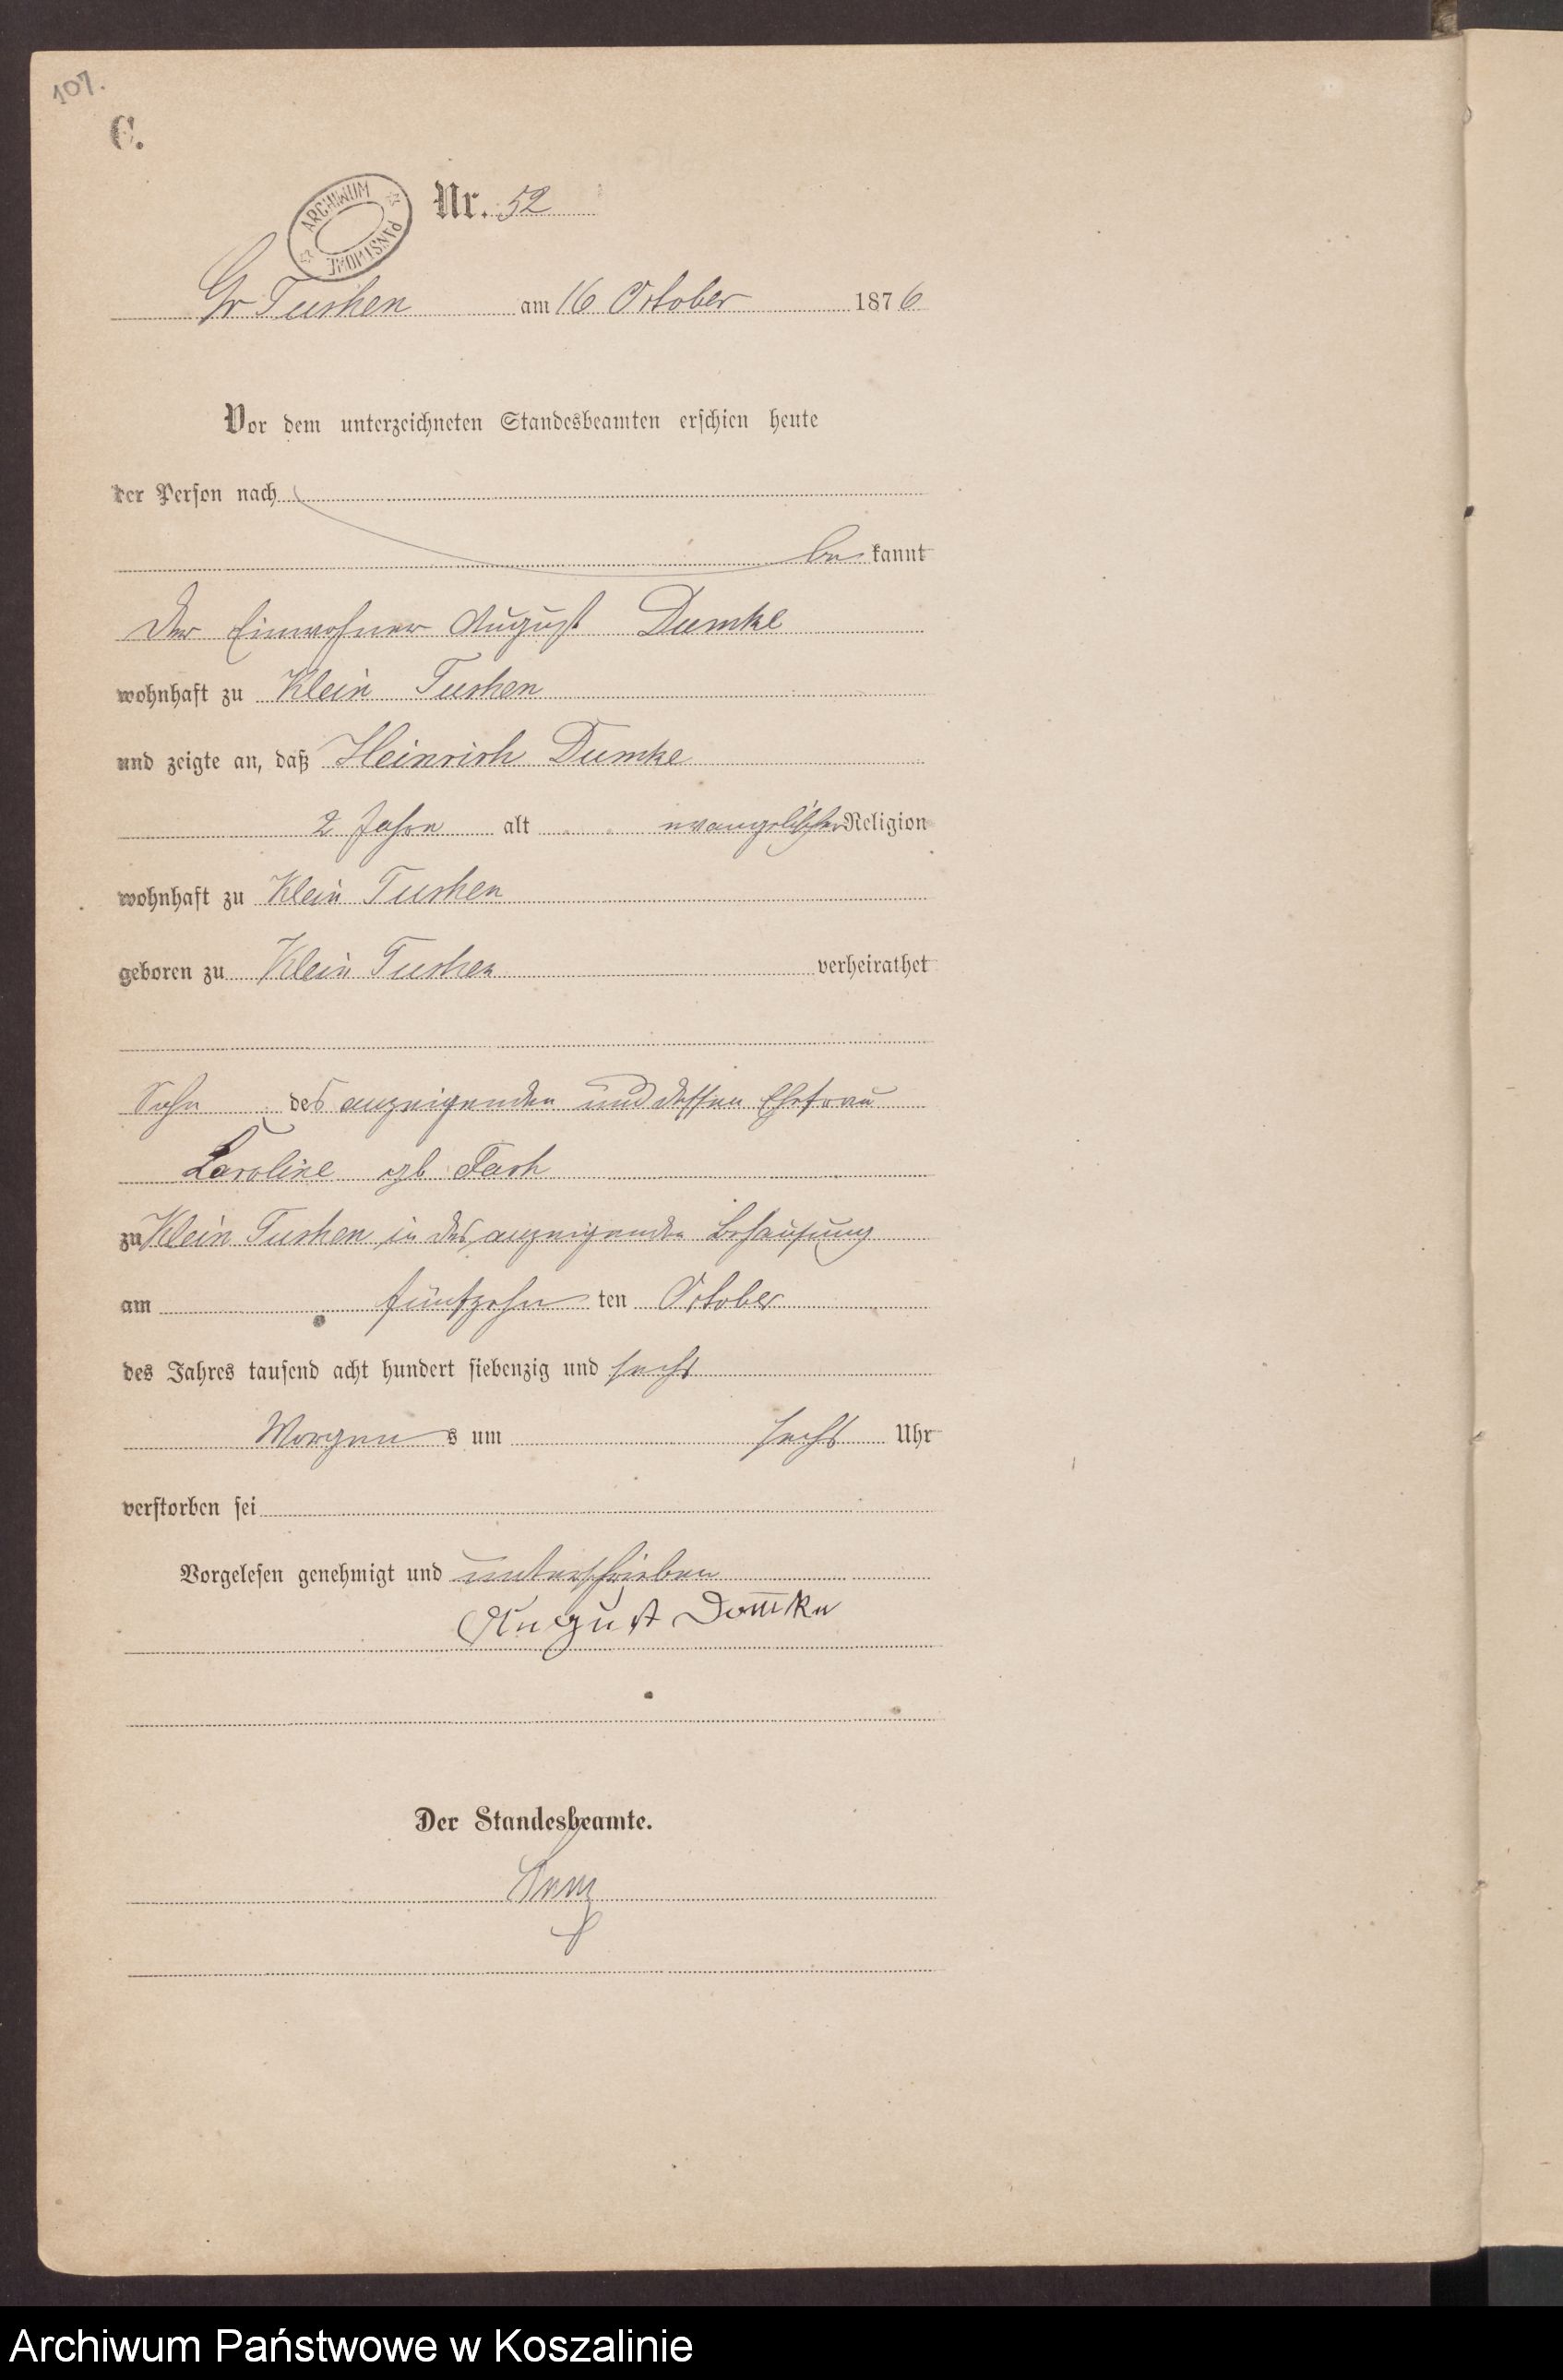 107.
C.
ARCHIWUM PAŃSTWOWE
Nr. 52
Gr Tuchen am 16 October 1876
Vor dem unterzeichneten Standesbeamten erschien heute
der Person nach
be kannt
der Einwohner August Dumke
wohnhaft zu Klein Tuchen
und zeigte an, daß Heinrich Dumke
2 Jahre alt evangelischer Religion
wohnhaft zu Klein Tuchen
geboren zu Klein Tuchen verheirathet
Sohn des anzeigenden und dessen Ehefrau
Caroline geb
zu Klein Tuchen in des anzeigenden Behausung
am fünfzehn ten October
des Jahres tausend acht hundert siebenzig und sechs
Morgen s um sechs Uhr
verstorben sei
Vorgelesen genehmigt und unterschrieben
August Domke
Der Standesbeamte.
Archiwum Państwowe w Koszalinie